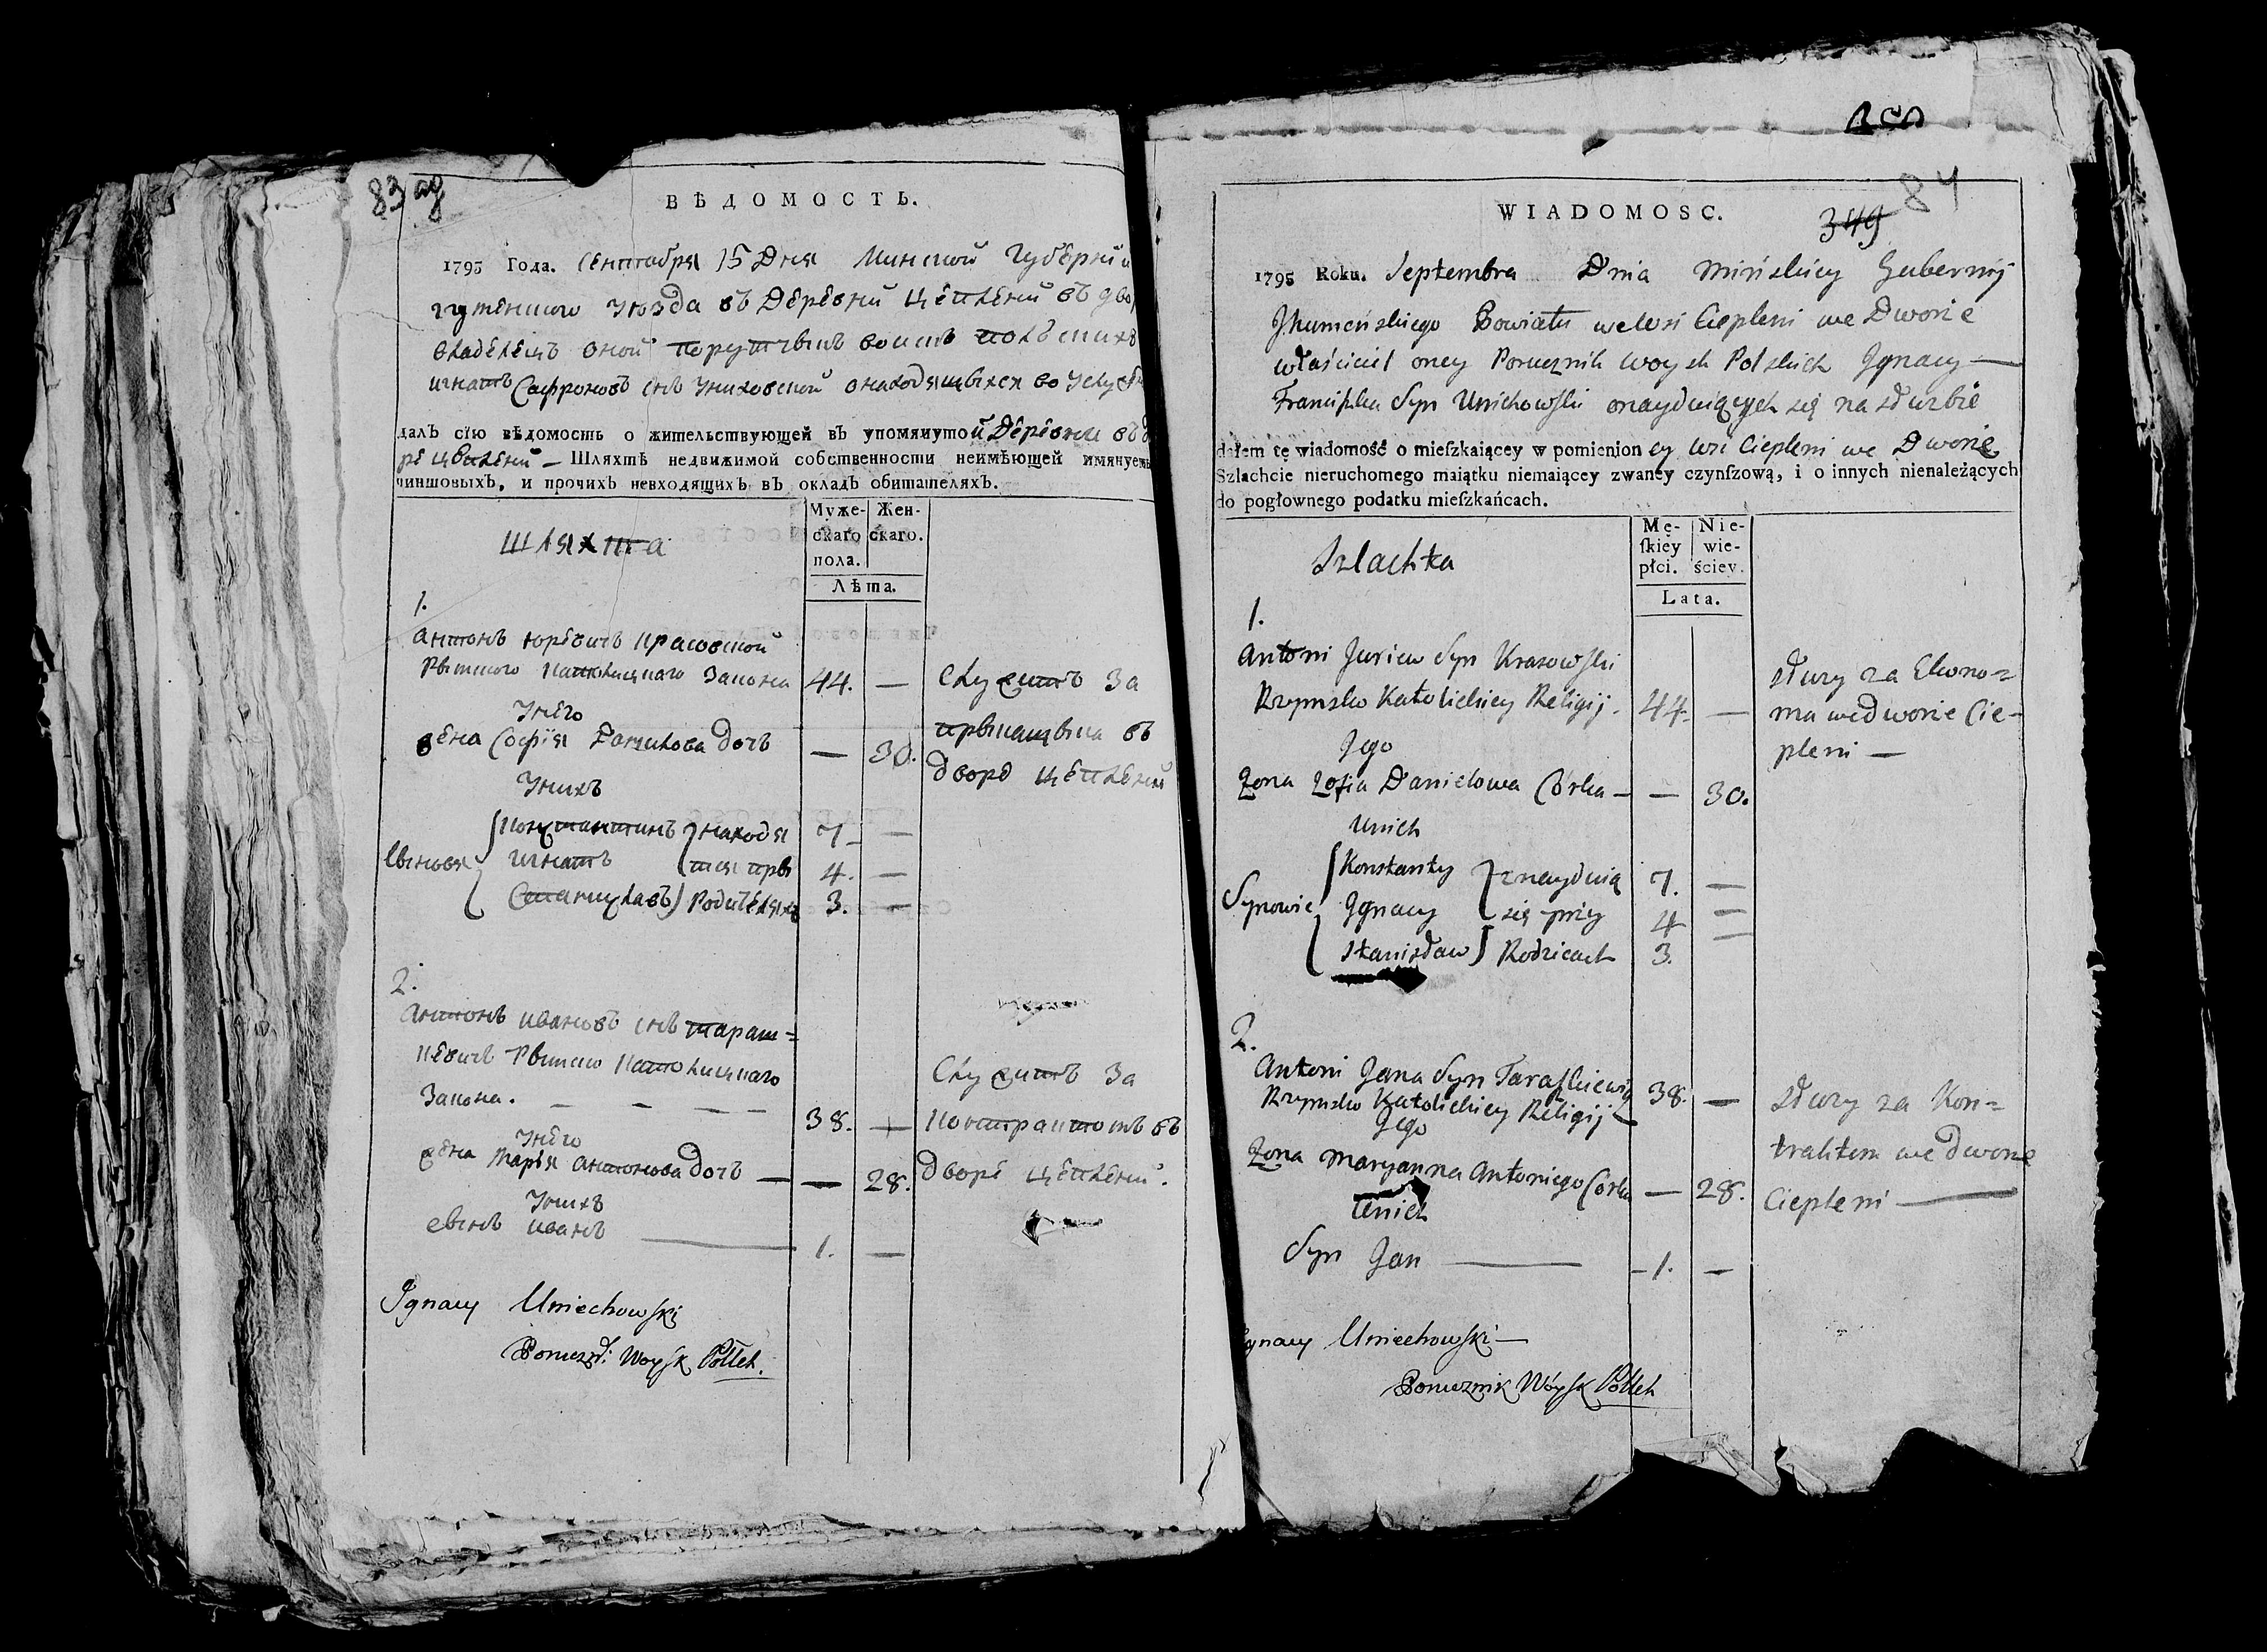 83 об
ВѢДОМОСТЬ.
1795 Года. Сентября 15 Дня Минской Губернии
Игуменского уезда въ Деревни Цепленй въ дво
владелецъ оной порутчикъ воискъ полскихъ
игнатъ Сафроновъ снъ униховской о находящыхся во услуже
далъ сїю вѣдомость о жительствующей въ упомянутой Деревни въ д
ре цепленй — Шляхтѣ недвижимой собственности неимѣющей имянуемы
чиншовыхъ, и прочихъ невходящихъ въ окладъ обитателяхъ.
Муже- Жен-
скаго скаго.
пола.
Лѣта.
шляхта
1.
антонъ юревичъ красовской
рымского католицкаго закона 44. — служитъ за
у него
жена Софїя Данилова дочъ — 30. дворе цепленй
у нихъ
Сыновя Констант�инъ находя 7 —
игнатъ тся пры 4. —
Станиславъ Родителяхъ 3. —
2.
антонъ ивановъ снъ тараш=
кевичъ рымско католицкаго
закона. — — — — 38. —
служитъ за
контрактомъ въ
дворе цепленй.
у него
жена марья антонова дочъ — — 28.
у нихъ
сынъ иванъ — 1. —
Ignacy Uniechowski
Woysk Polskch.
84
349
WIADOMOSC.
1795 Roku. Septembra Dnia Mińskiey Gubernij
Jhumeńskiego Powiatu we Wsi Ciepleni we Dworze
właściciel oney Porucznik woysk Polskich Jgnacy —
Franciszka Syn Unichowski o nayduiących się na służbie
dałem tę wiadomość o mieſzkaiącey w pomienioney wsi Ciepleni we Dworze
Szlachcie nieruchomego maiątku niemaiącey zwaney czynſzową, i o innych nienależących
do pogłownego podatku mieſzkańcach.
Mę- Nie-
ſkiey wie-
płci. ściey.
Lata.
Szlachta
1.
Antoni Juriew Syn Krasowski
Rzymsko Katolickiey Religij. 44. —
służy za Ekono=
ma we dworze Cie-
pleni —
Jego
Żona Zofia Danielowa Córka — — 30.
U nich
Synowie Konstanty znayduią 7. —
Jgnacy się przy 4 —
Stanisław Rodzicach 3. —
2.
Antoni Jana Syn Taraszkiewicz
Rzymsko Katolickiey Religij 38. —
służy za Kon=
traktem we dworze
Ciepleni —
Jego
Żona Maryanna Antoniego Córka — 28.
U nich
Syn Jan — 1. —
Ignacy Uniechowski —
Porucznik Woysk Polskch